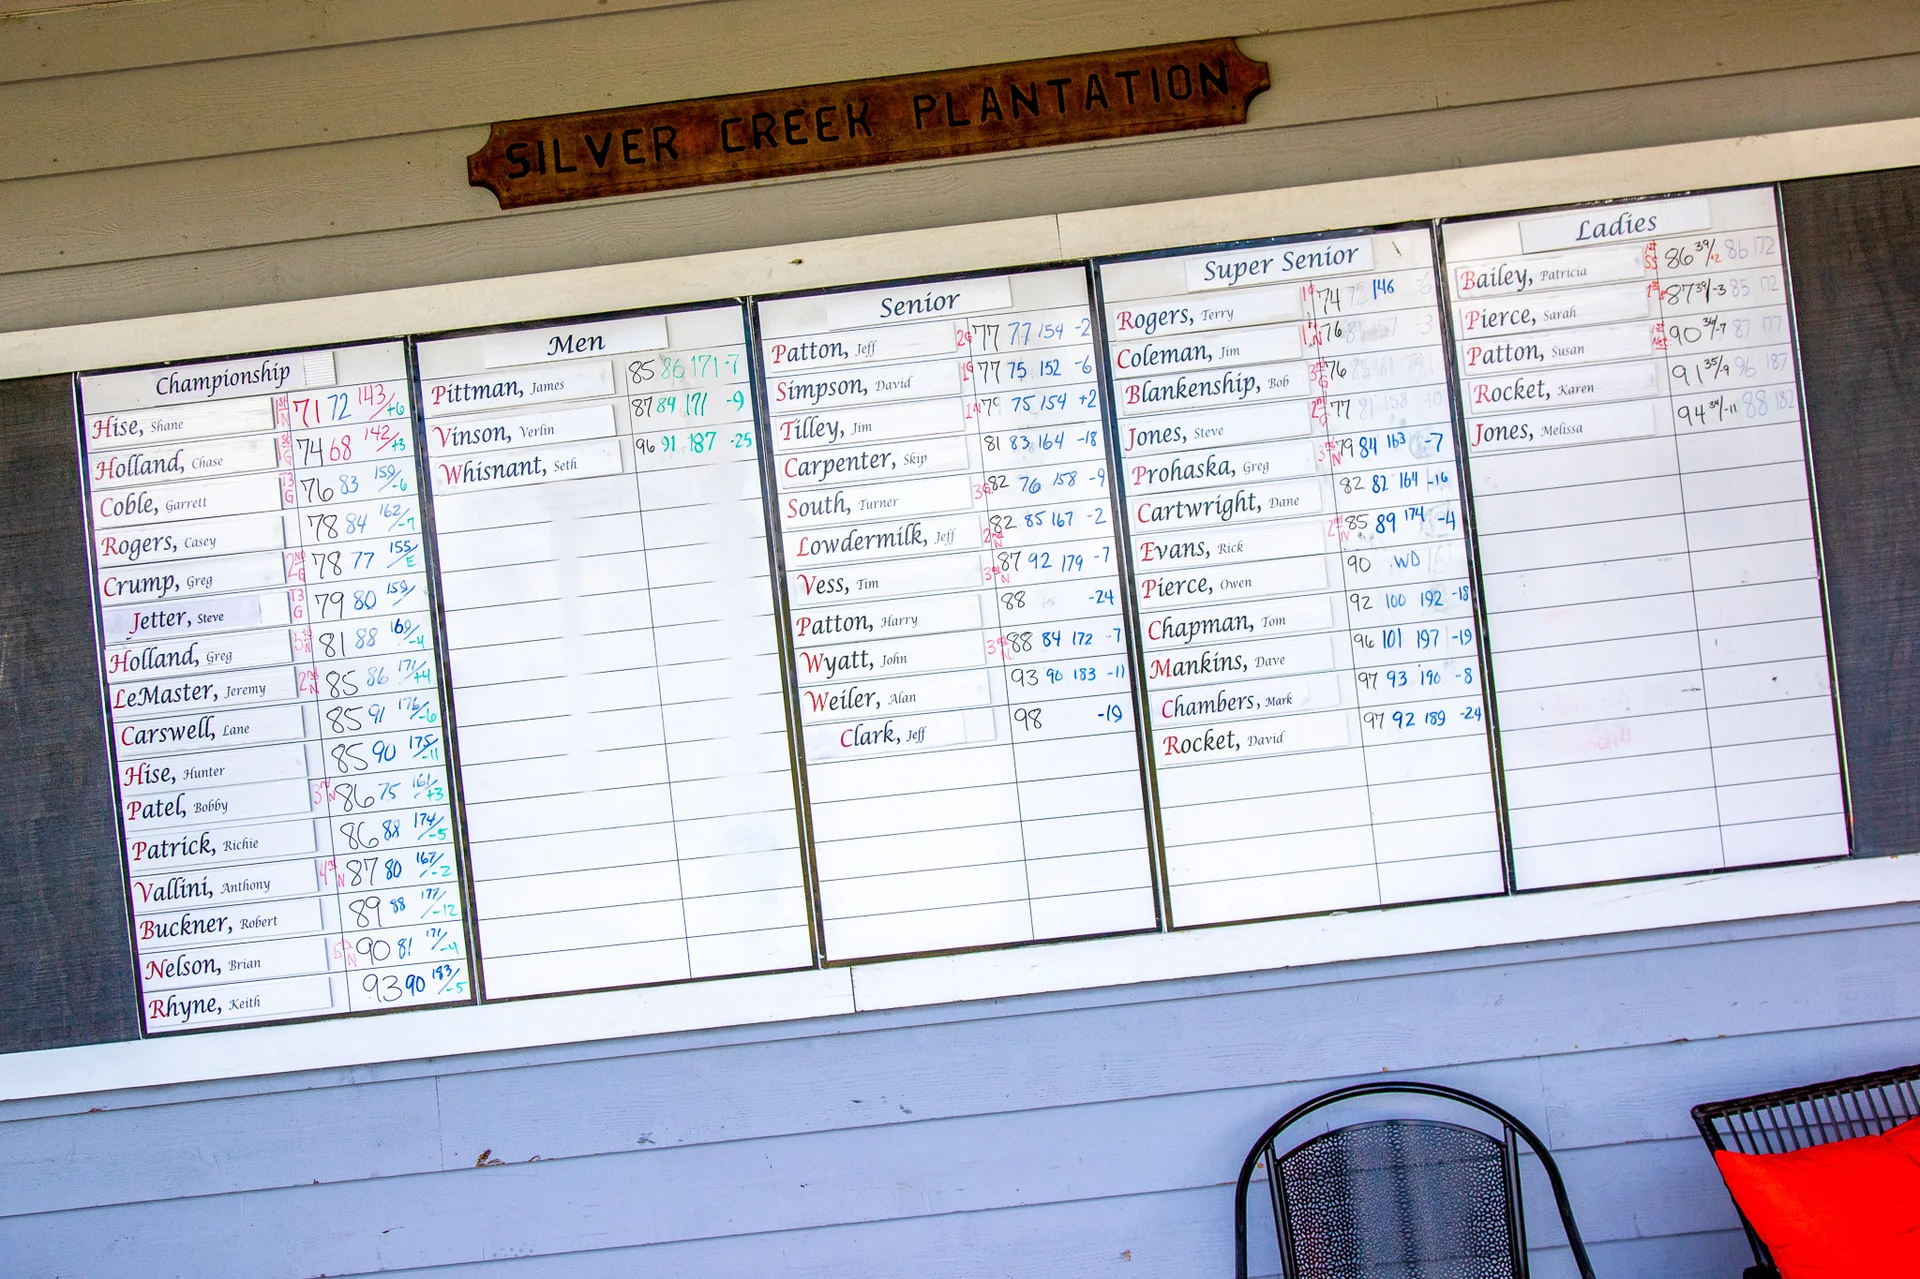 SILVER CREEK PLANTATION
Championship
Hise, Shane 1st N 71 72 143/+6
Holland, Chase 1st G 74 68 142/+3
Coble, Garrett T3 G 76 83 159/-6
Rogers, Casey 78 84 162/-7
Crump, Greg 2ND G 78 77 155/E
Jetter, Steve T3 G 79 80 159/
Holland, Greg N 81 88 169/-4
LeMaster, Jeremy 2nd N 85 86 171/+4
Carswell, Lane 85 91 176/-6
Hise, Hunter 85 90 175/-11
Patel, Bobby 3rd N 86 75 161/+3
Patrick, Richie 86 88 174/-5
Vallini, Anthony 4th N 87 80 167/-2
Buckner, Robert 89 88 177/-12
Nelson, Brian N 90 81 171/-4
Rhyne, Keith 93 90 183/-5
Men
Pittman, James 85 86 171 -7
Vinson, Verlin 87 84 171 -9
Whisnant, Seth 96 91 187 -25
Senior
Patton, Jeff 2G 77 77 154 -2
Simpson, David 1G 77 75 152 -6
Tilley, Jim 1N 79 75 154 +2
Carpenter, Skip 81 83 164 -18
South, Turner 3G 82 76 158 -9
Lowdermilk, Jeff 2nd N 82 85 167 -2
Vess, Tim 3rd N 87 92 179 -7
Patton, Harry 88 -24
Wyatt, John 3rd N 88 84 172 -7
Weiler, Alan 93 90 183 -11
Clark, Jeff 98 -19
Super Senior
Rogers, Terry 1G 74 72 146 -6
Coleman, Jim 1N 76 81 157 -3
Blankenship, Bob 3rd G 76 85 161
Jones, Steve 2nd G 77 81 158 -10
Prohaska, Greg 3rd N 79 84 163 -7
Cartwright, Dane 82 82 164 -16
Evans, Rick 2nd N 85 89 174 -4
Pierce, Owen 90 WD
Chapman, Tom 92 100 192 -18
Mankins, Dave 96 101 197 -19
Chambers, Mark 97 93 190 -8
Rocket, David 97 92 189 -24
Ladies
Bailey, Patricia 1st SS 86 39/+2 86 172
Pierce, Sarah 87 39/-3 85 172
Patton, Susan 1st Net 90 34/-7 87 177
Rocket, Karen 91 35/9 96 187
Jones, Melissa 94 34/-11 88 182